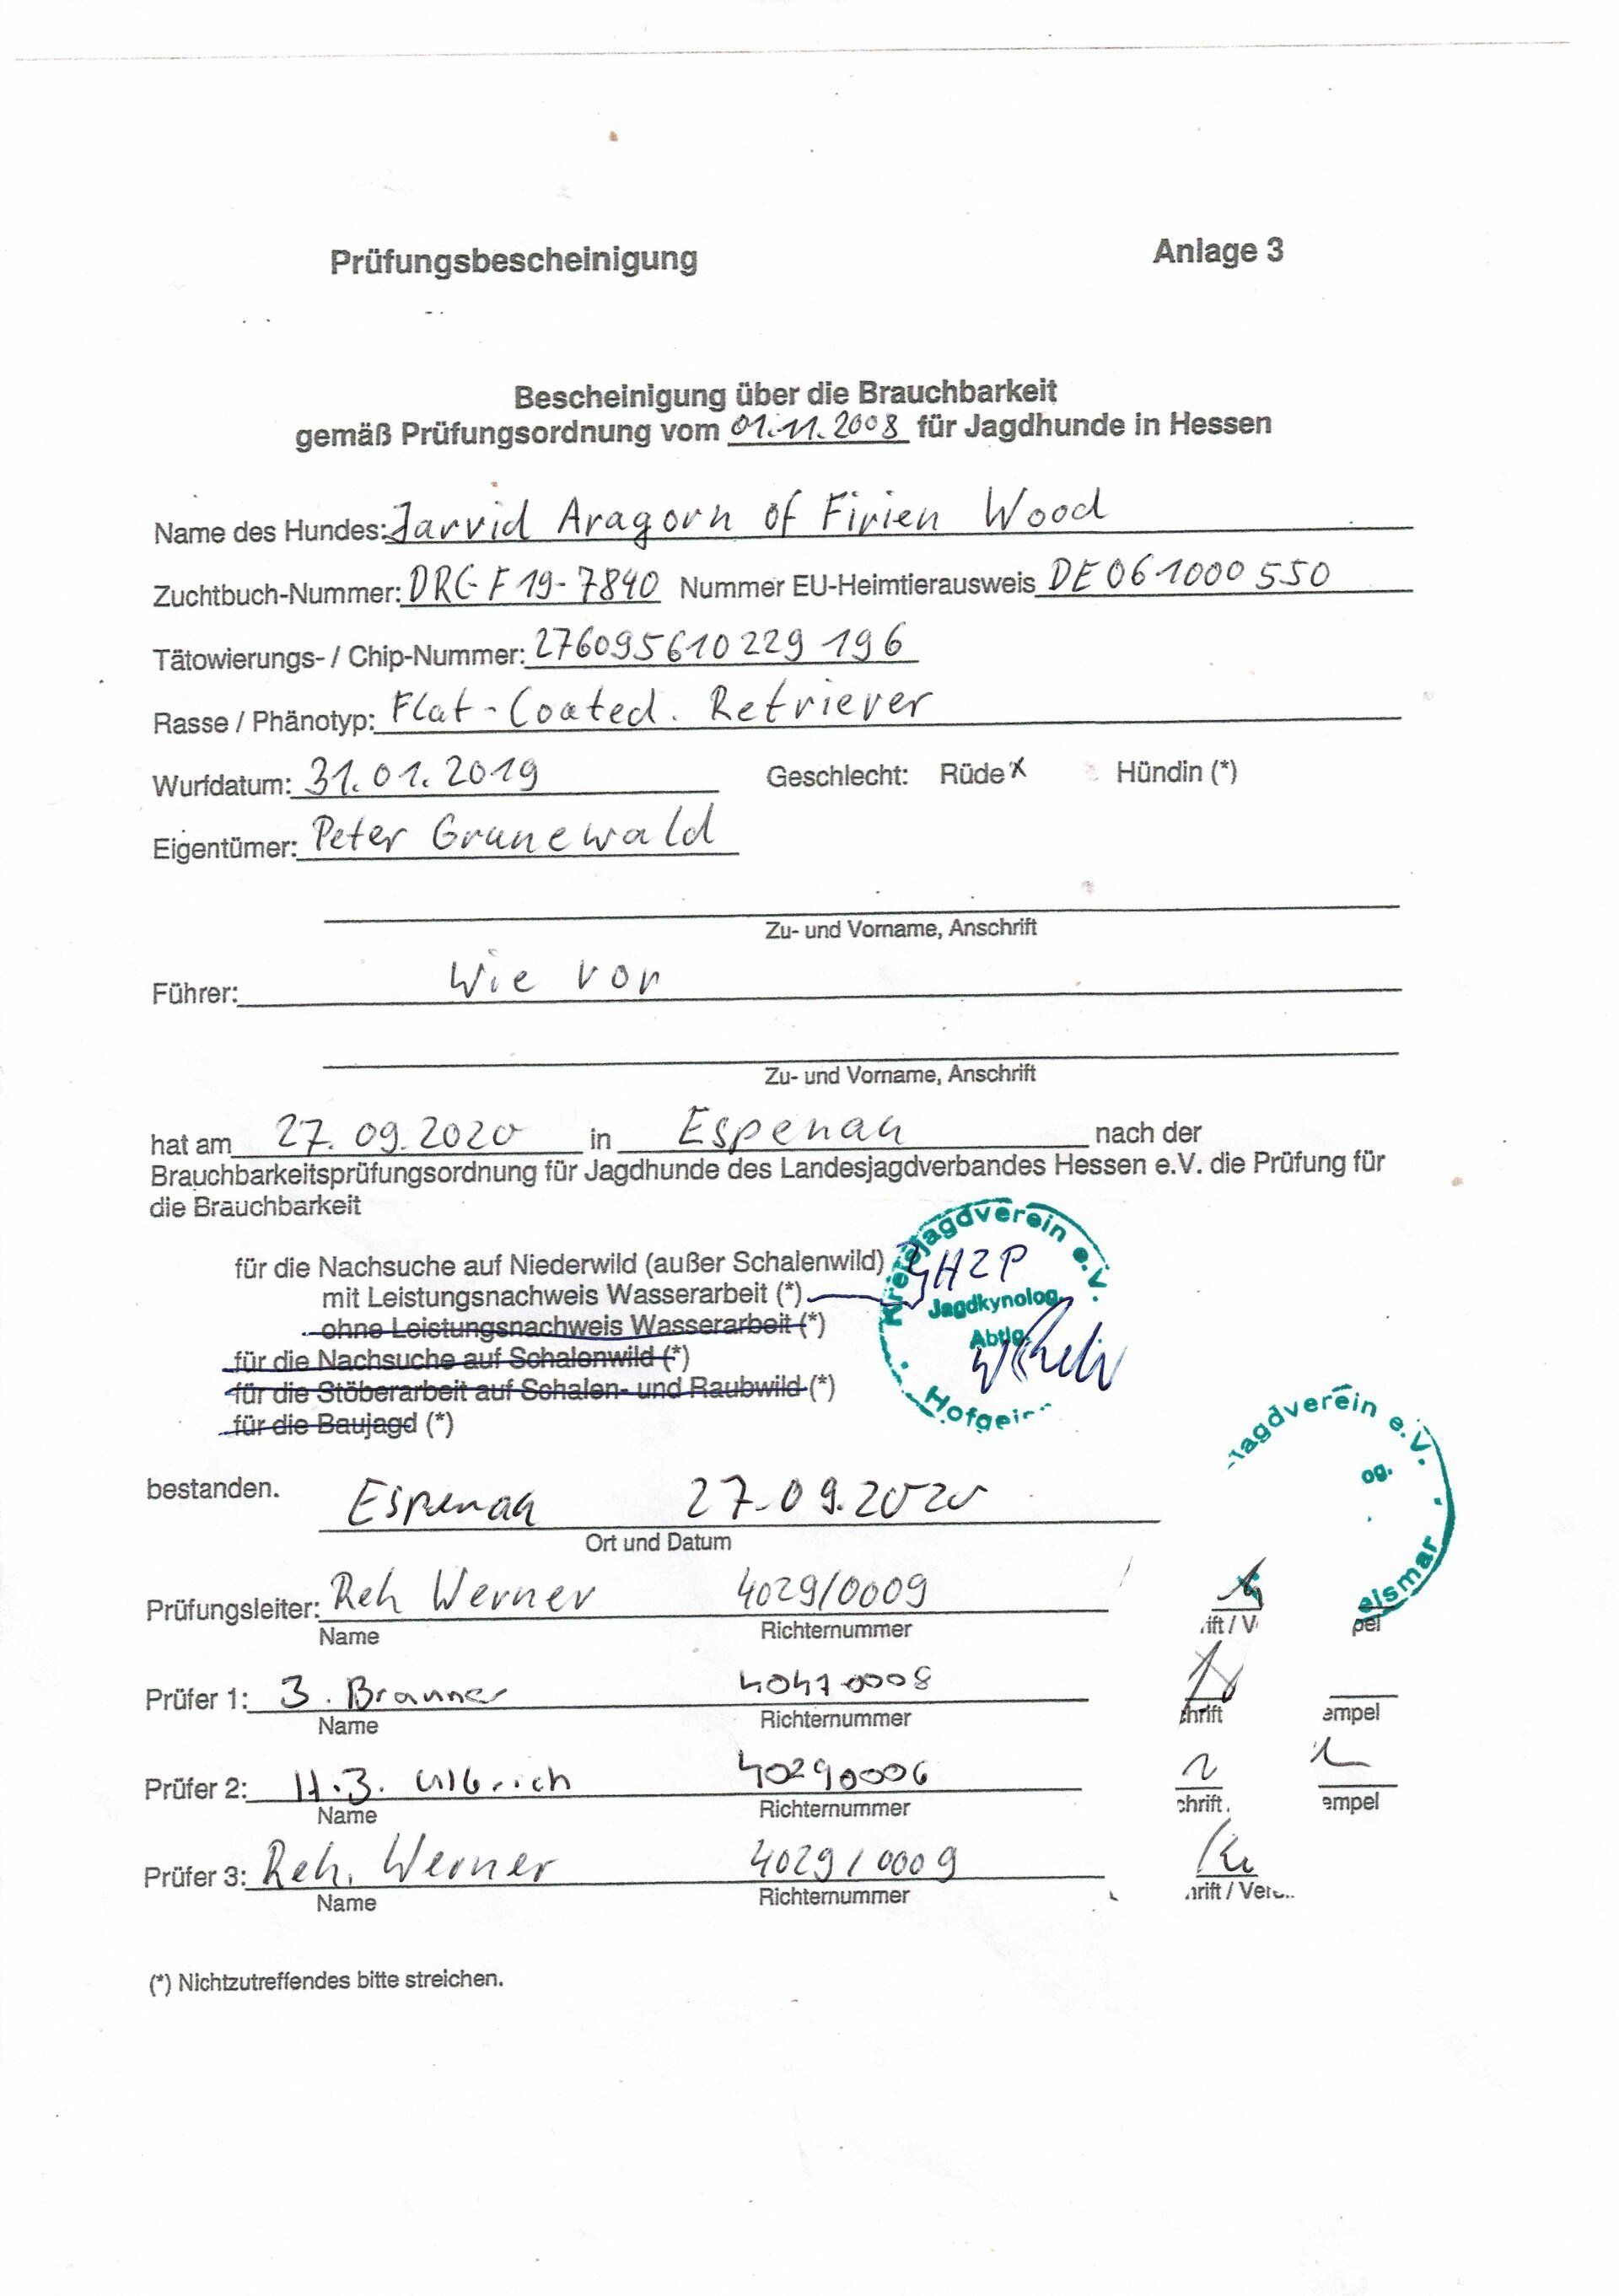 Prüfungsbescheinigung Anlage 3
Bescheinigung über die Brauchbarkeit
gemäß Prüfungsordnung vom 01.11.2008 für Jagdhunde in Hessen
Name des Hundes: Jarvid Aragorn of Firien Wood
Zuchtbuch-Nummer: DRC-F 19-7840 Nummer EU-Heimtierausweis DE 061000 550
Tätowierungs- / Chip-Nummer: 276095610229 196
Rasse / Phänotyp: Flat-Coated. Retriever
Wurfdatum: 31.01.2019 Geschlecht: Rüde x Hündin (*)
Eigentümer: Peter Grunewald
Zu- und Vorname, Anschrift
Führer: Wie vor
Zu- und Vorname, Anschrift
hat am 27.09.2020 in Espenau nach der
Brauchbarkeitsprüfungsordnung für Jagdhunde des Landesjagdverbandes Hessen e.V. die Prüfung für
die Brauchbarkeit
für die Nachsuche auf Niederwild (außer Schalenwild)
mit Leistungsnachweis Wasserarbeit (*)
ohne Leistungsnachweis Wasserarbeit (*)
für die Nachsuche auf Schalenwild (*)
für die Stöberarbeit auf Schalen- und Raubwild (*)
für die Baujagd (*)
Kreisjagdverein e.V.
HZP
Jagdkynolog.
Abtlg.
Hofgei
jagdverein e.V.
og.
eismar
bestanden.
Espenau 27.09.2020
Ort und Datum
Prüfungsleiter: Reh Werner 4029/0009
Name Richternummer ift / V pel
Prüfer 1: J. Brauner 40410008
Name Richternummer hrift empel
Prüfer 2: H.J. Ulbrich 40290006
Name Richternummer chrift empel
Prüfer 3: Reh, Werner 4029/0009
Name Richternummer hrift / Ver
(*) Nichtzutreffendes bitte streichen.